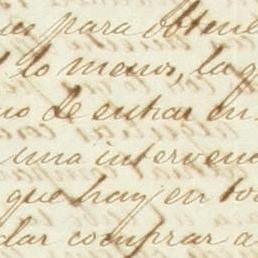 para obtene
lo menos, la q
no de entrar en
una intervenc
que hay en to
dar comprar a